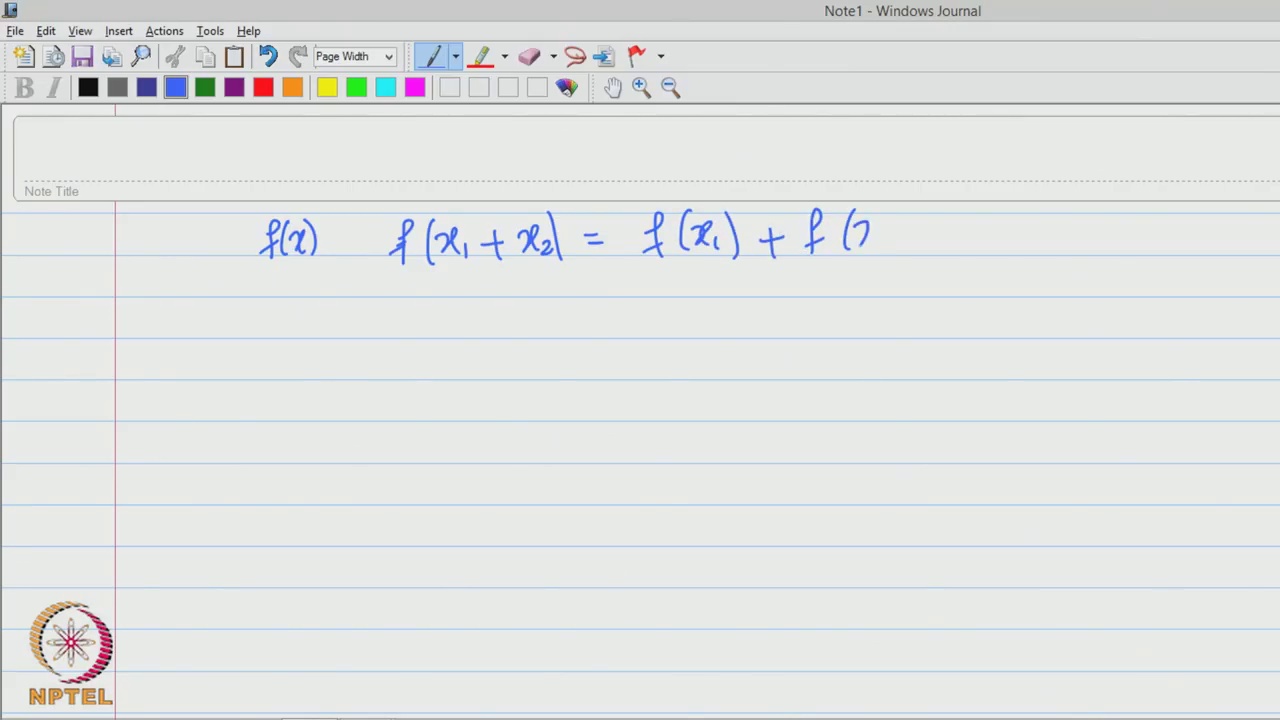 Note1 - Windows Journal
File Edit View Insert Actions Tools Help
Page Width
B I
Note Title
f(x) f(x₁ + x₂) = f(x₁) + f(
NPTEL